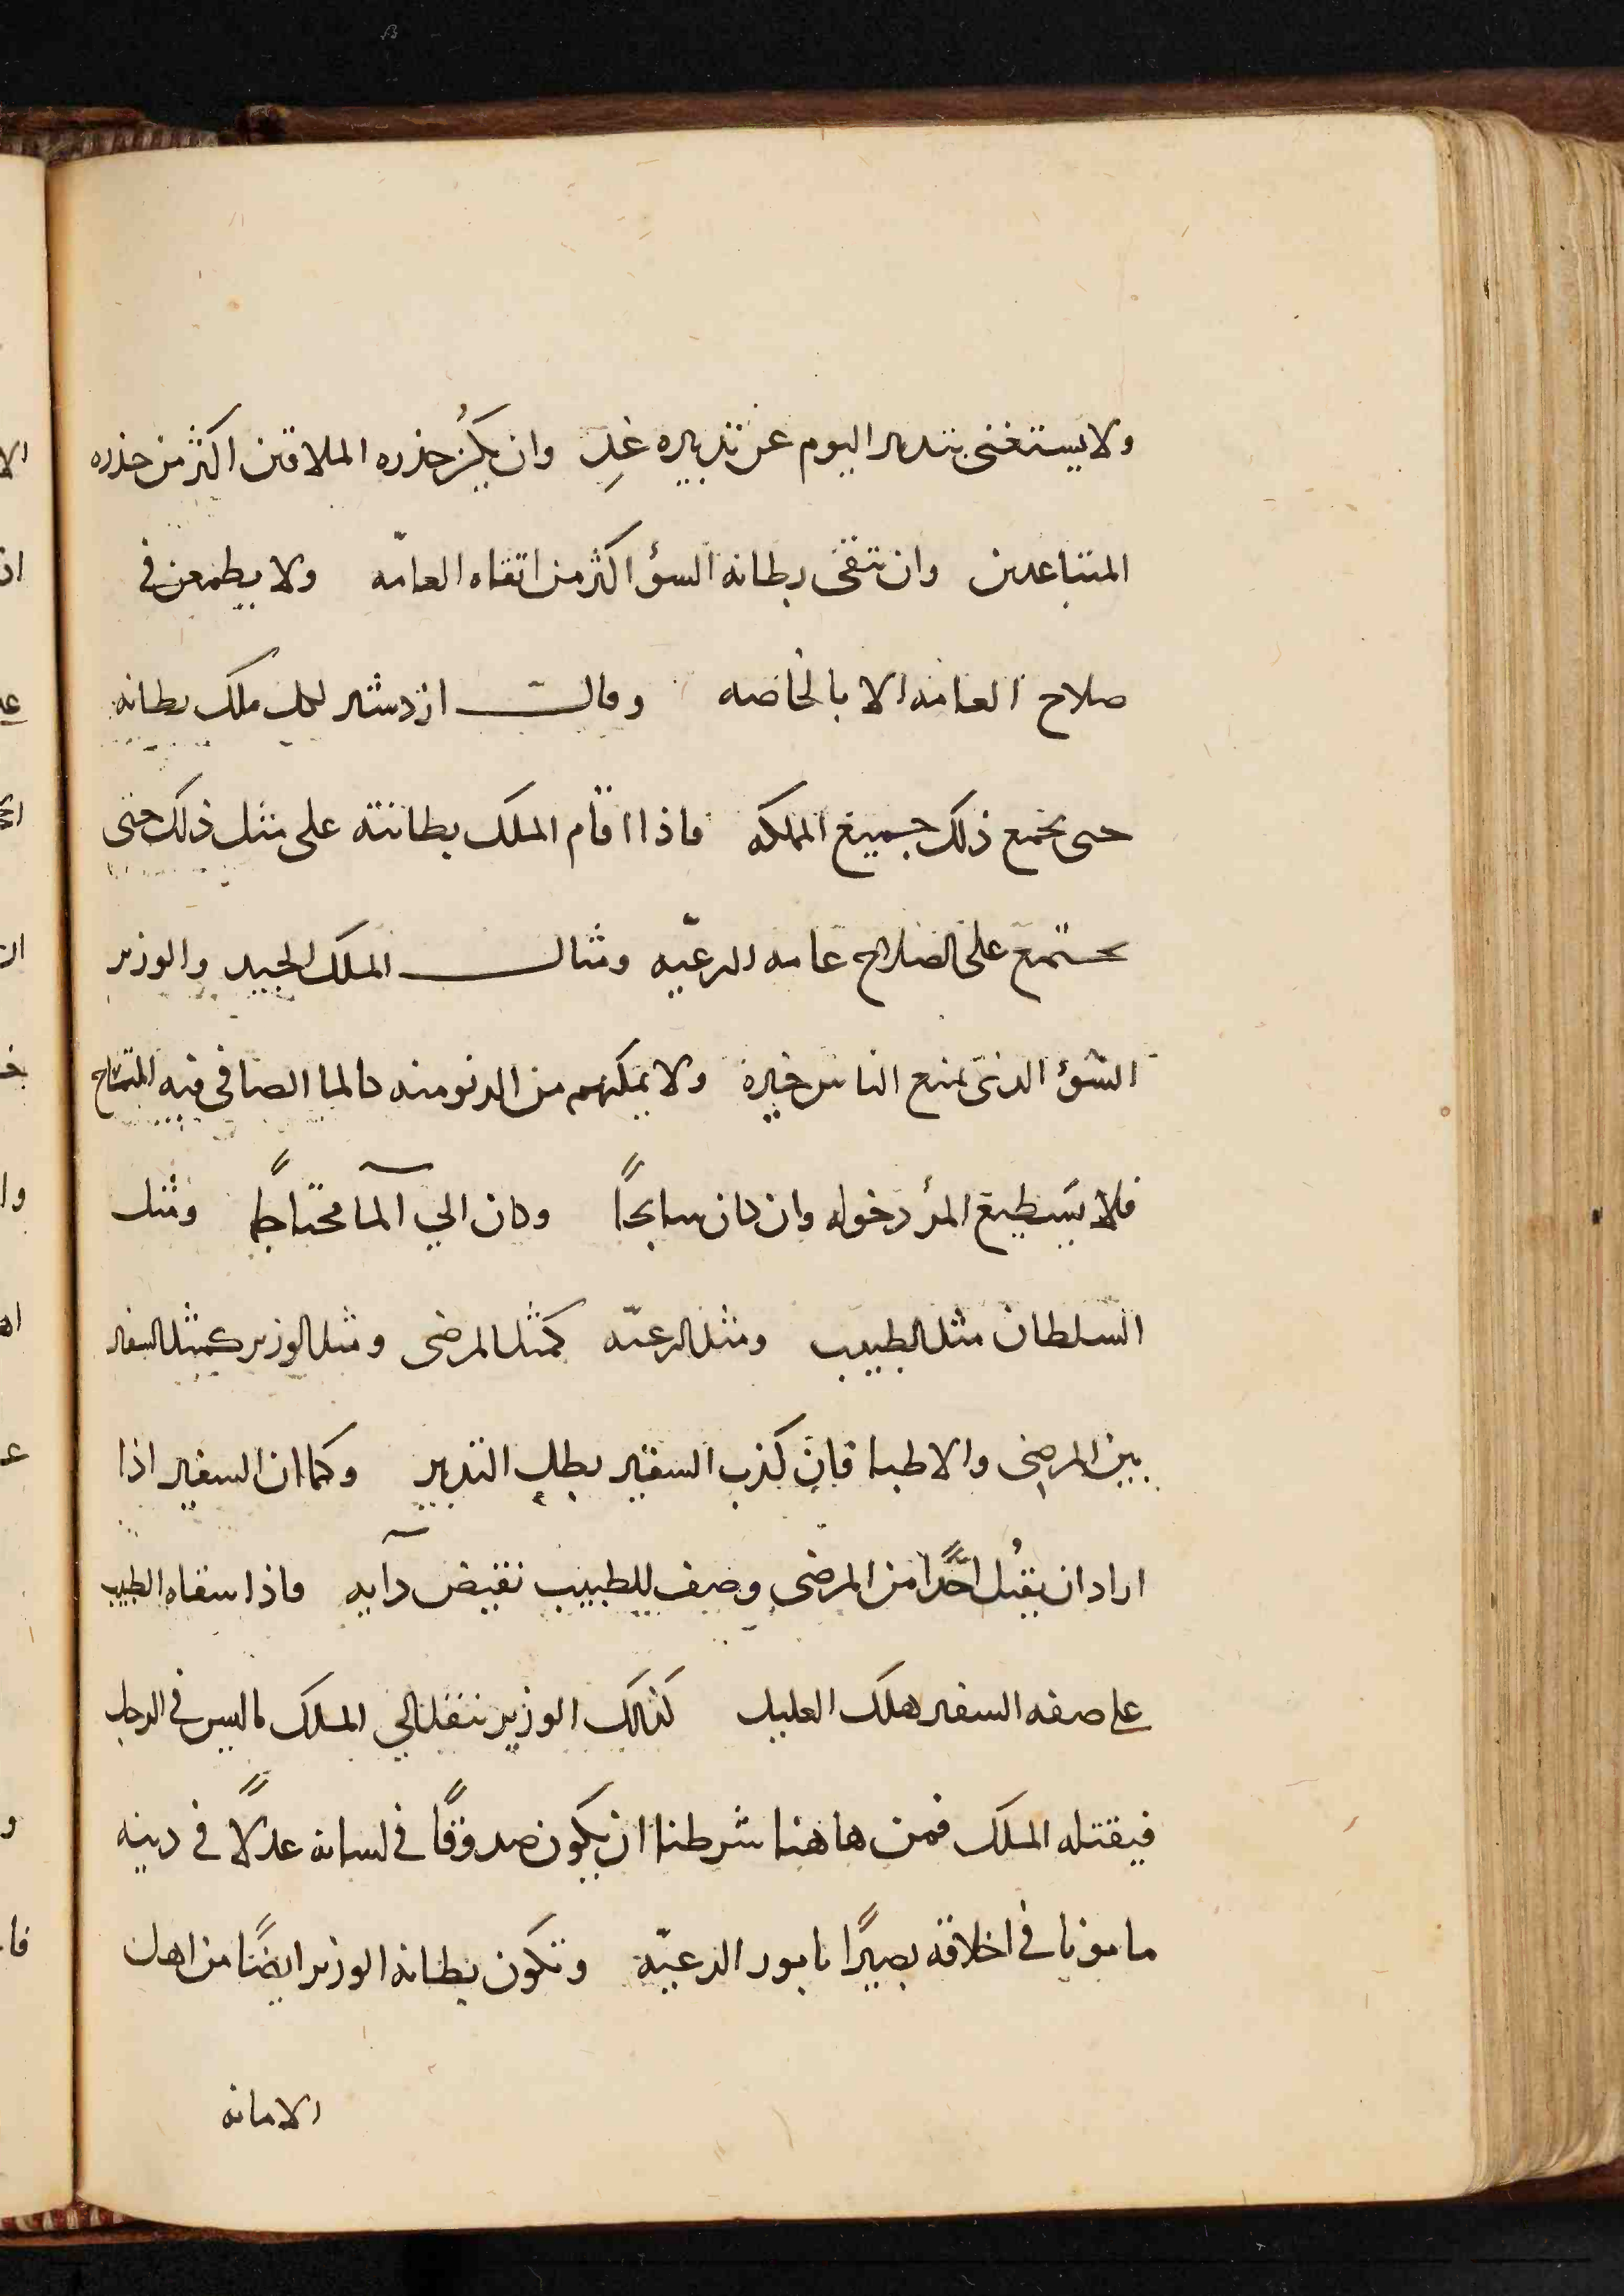 ولا يستغنى بتدبير اليوم عن تدبيره غدٍ وان يكُن حذره الملاقين اكثر من حذره
المتباعدين وان تتقى بطانه السؤ اكثر من اتقاه العامّه ولا يطمعن فى
صلاح العامه الا بالخاصه وقالت ازدشير لكل ملك بطانه
حتى يجمع ذلك جميع المملكه فاذا اقام الملك بطانته على مثل ذلك حتى
يجتمع على الصلاح عامه الرعيّه ومثال الملك الجيد والوزير
السؤ الذى يمنع الناس خيره ولا يمكنهم من الدنو منه كالما الصافى فيه التمساح
فلا يستطيع المرؤ دخوله وان كان سابحًا وكان الي الما محتاجًا ومثل
السلطان مثل الطبيب ومثل الرعيّه كمثل المرضى ومثل الوزير كمثل السفير
بين المرضى والاطبا فان كذب السفير بطل التدبير وكما ان السفير اذا
اراد ان يقتُل احدًا من المرضى وصف للطبيب نقيض دآيه فاذا سقاه الطبيب
على صفه السفير هلك العليل كذلك الوزير ينقل الي الملك ما ليس فى الرجل
فيقتله الملك فمن هاهنا شرطنا ان يكون صدوقًا فى لسانه عدلًا فى دينه
مامونا فى اخلاقه بصيرًا بامور الرعيّه وتكون بطانه الوزير ايضًا من اهل
الامانه